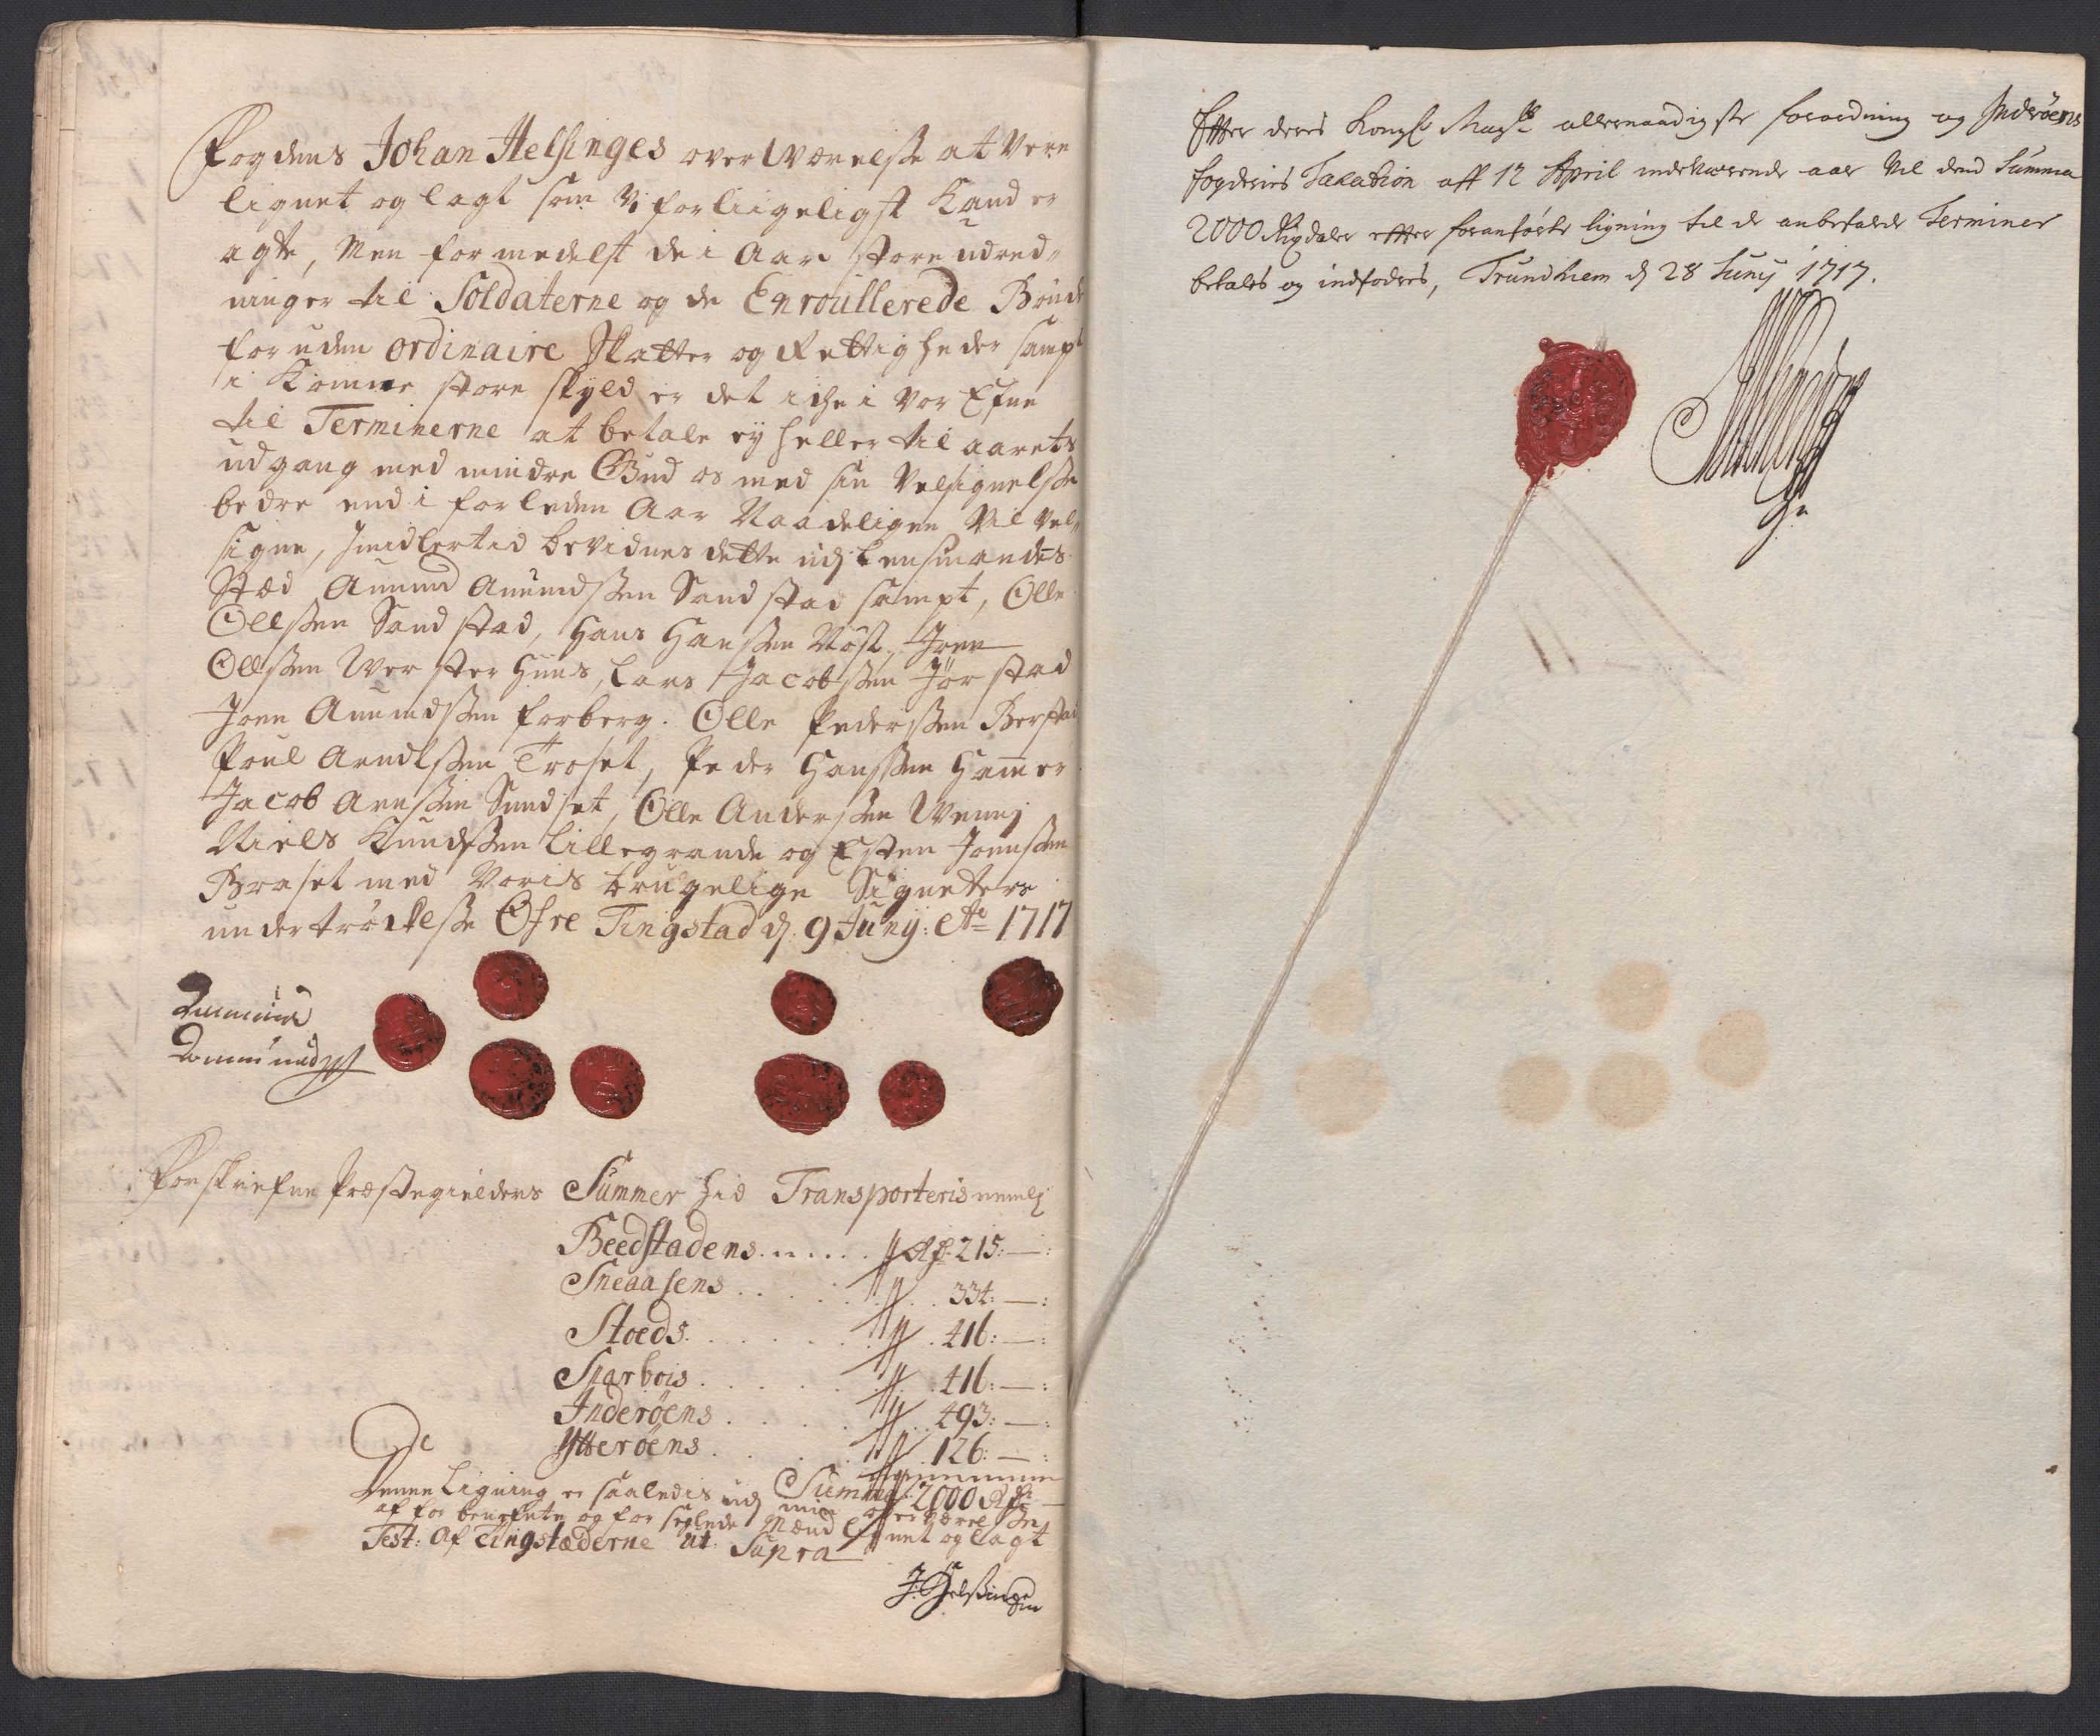 Fogdens Johan Helsinges overwærelsse at Være
lignet og lagt som Vi forliigeligst Kand er
agte, Men formedelst de i Aar store udred„
ninger til Soldaterne og de Enroullerede Bönder
foruden ordinaire Skatter og Rettigheder sampt
i Komne store skyld er det iche i Vor Efne
til Terminerne at betale ej heller til aarets
udgang med mindre Gud os med sin Velsignelsse
bedre end i forleden Aar Naadeligen Vil Vel„
signe, Imidlertid bevidnes dette udj Lensmandes
Stæd Amund Amundssen Sandstad sampt, Olle
Ollssen Sandstad, Hans Hanssen Röst, Joen
Ollssen Wersterhuus, Lars Jacobssen Jörstad
Joen Amundssen Forberg. Olle Pederssen Berstad
Poul Arndtssen Troset, Peder Hanssen Hammer
Jacob Arnssen Sundset, Olle Anderssen Wennj
Niels Knudssen Lillegrande og Esten Joenssen
Braset med Voris brugelige Signeters
undertröckelsse Öfre Tingstad d. 9 Junij: Ao 1717
Ammund
Ammundss
Forskrefne Præstegieldens Summer hid Transporteris nemlig
Beedstadens . . . . . . Rd 215: — :
Sneaasens . . . . . . 334: — :
Stoeds . . . . . . 416: — :
Sparbois . . . . . . 416: — :
Inderöens . . . . . . 493: — :
Ytteröens . . . . . . 126: — :
Summa 2000 Rd —
Denne Ligning er saaledis udj min oferværelsse
af forbenefnte og forseglede Mænd lignet og lagt
Test: Af Tingstæderne ut Supra
J: Helssing
Efter deres Kongl Mayts allernaadigste forordning og Inderöens
fogderies Taxation aff 12 April indeværende aar Vil dend Summa
2000 Rixdaler efter foranförte ligning til de anbefalede Terminer
betales og indfodres, Trundhiem d 28 Junij 1717.